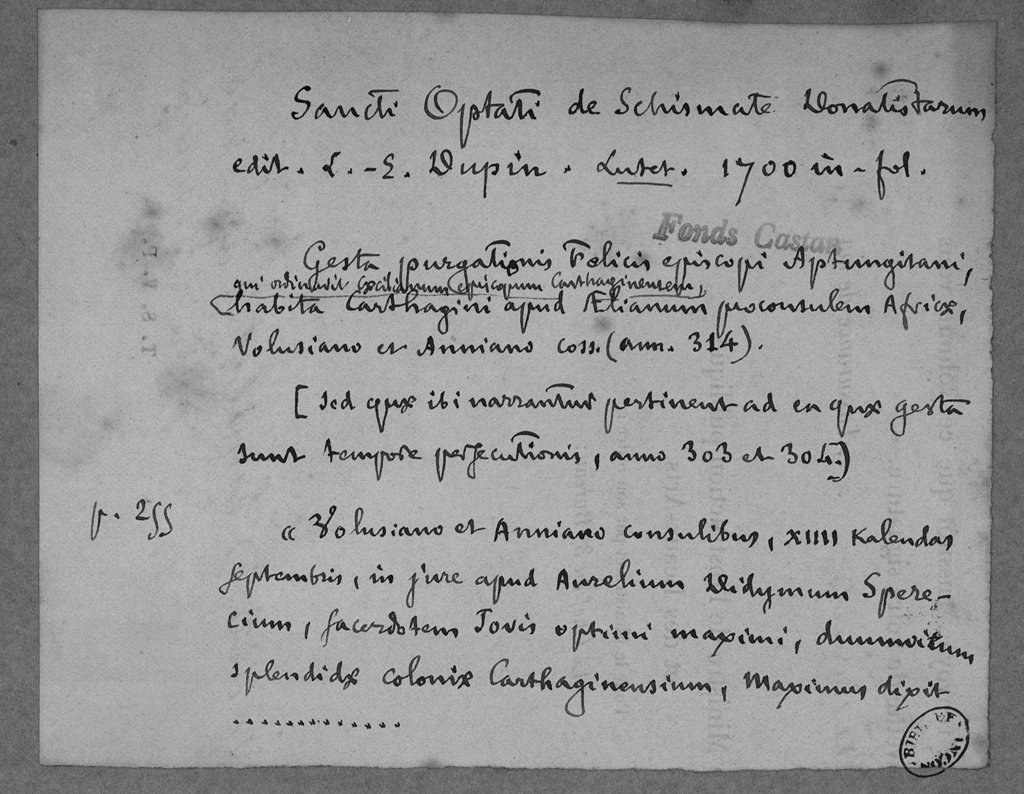 Sancti Optati de Schismate Donatistarum
edit. L.-E. Dupin. Lutet. 1700 in-fol.
Fonds Castan
Gesta purgationis Felicis episcopi Aptungitani,
qui ordinavit Cæcilianum episcopum Carthaginensem,
habita Carthagini apud Ælianum proconsulem Africæ,
Volusiano et Anniano coss. (ann. 314).
[sed quæ ibi narrantur pertinent ad ea quæ gesta
sunt tempore persecutionis, anno 303 et 304.)
p. 255
« Volusiano et Anniano consulibus, XIIII Kalendas
septembris, in jure apud Aurelium Didymum Spere-
cium, sacerdotem Jovis optimi maximi, duumvirum
splendidæ coloniæ Carthaginensium, Maximus dixit
.............